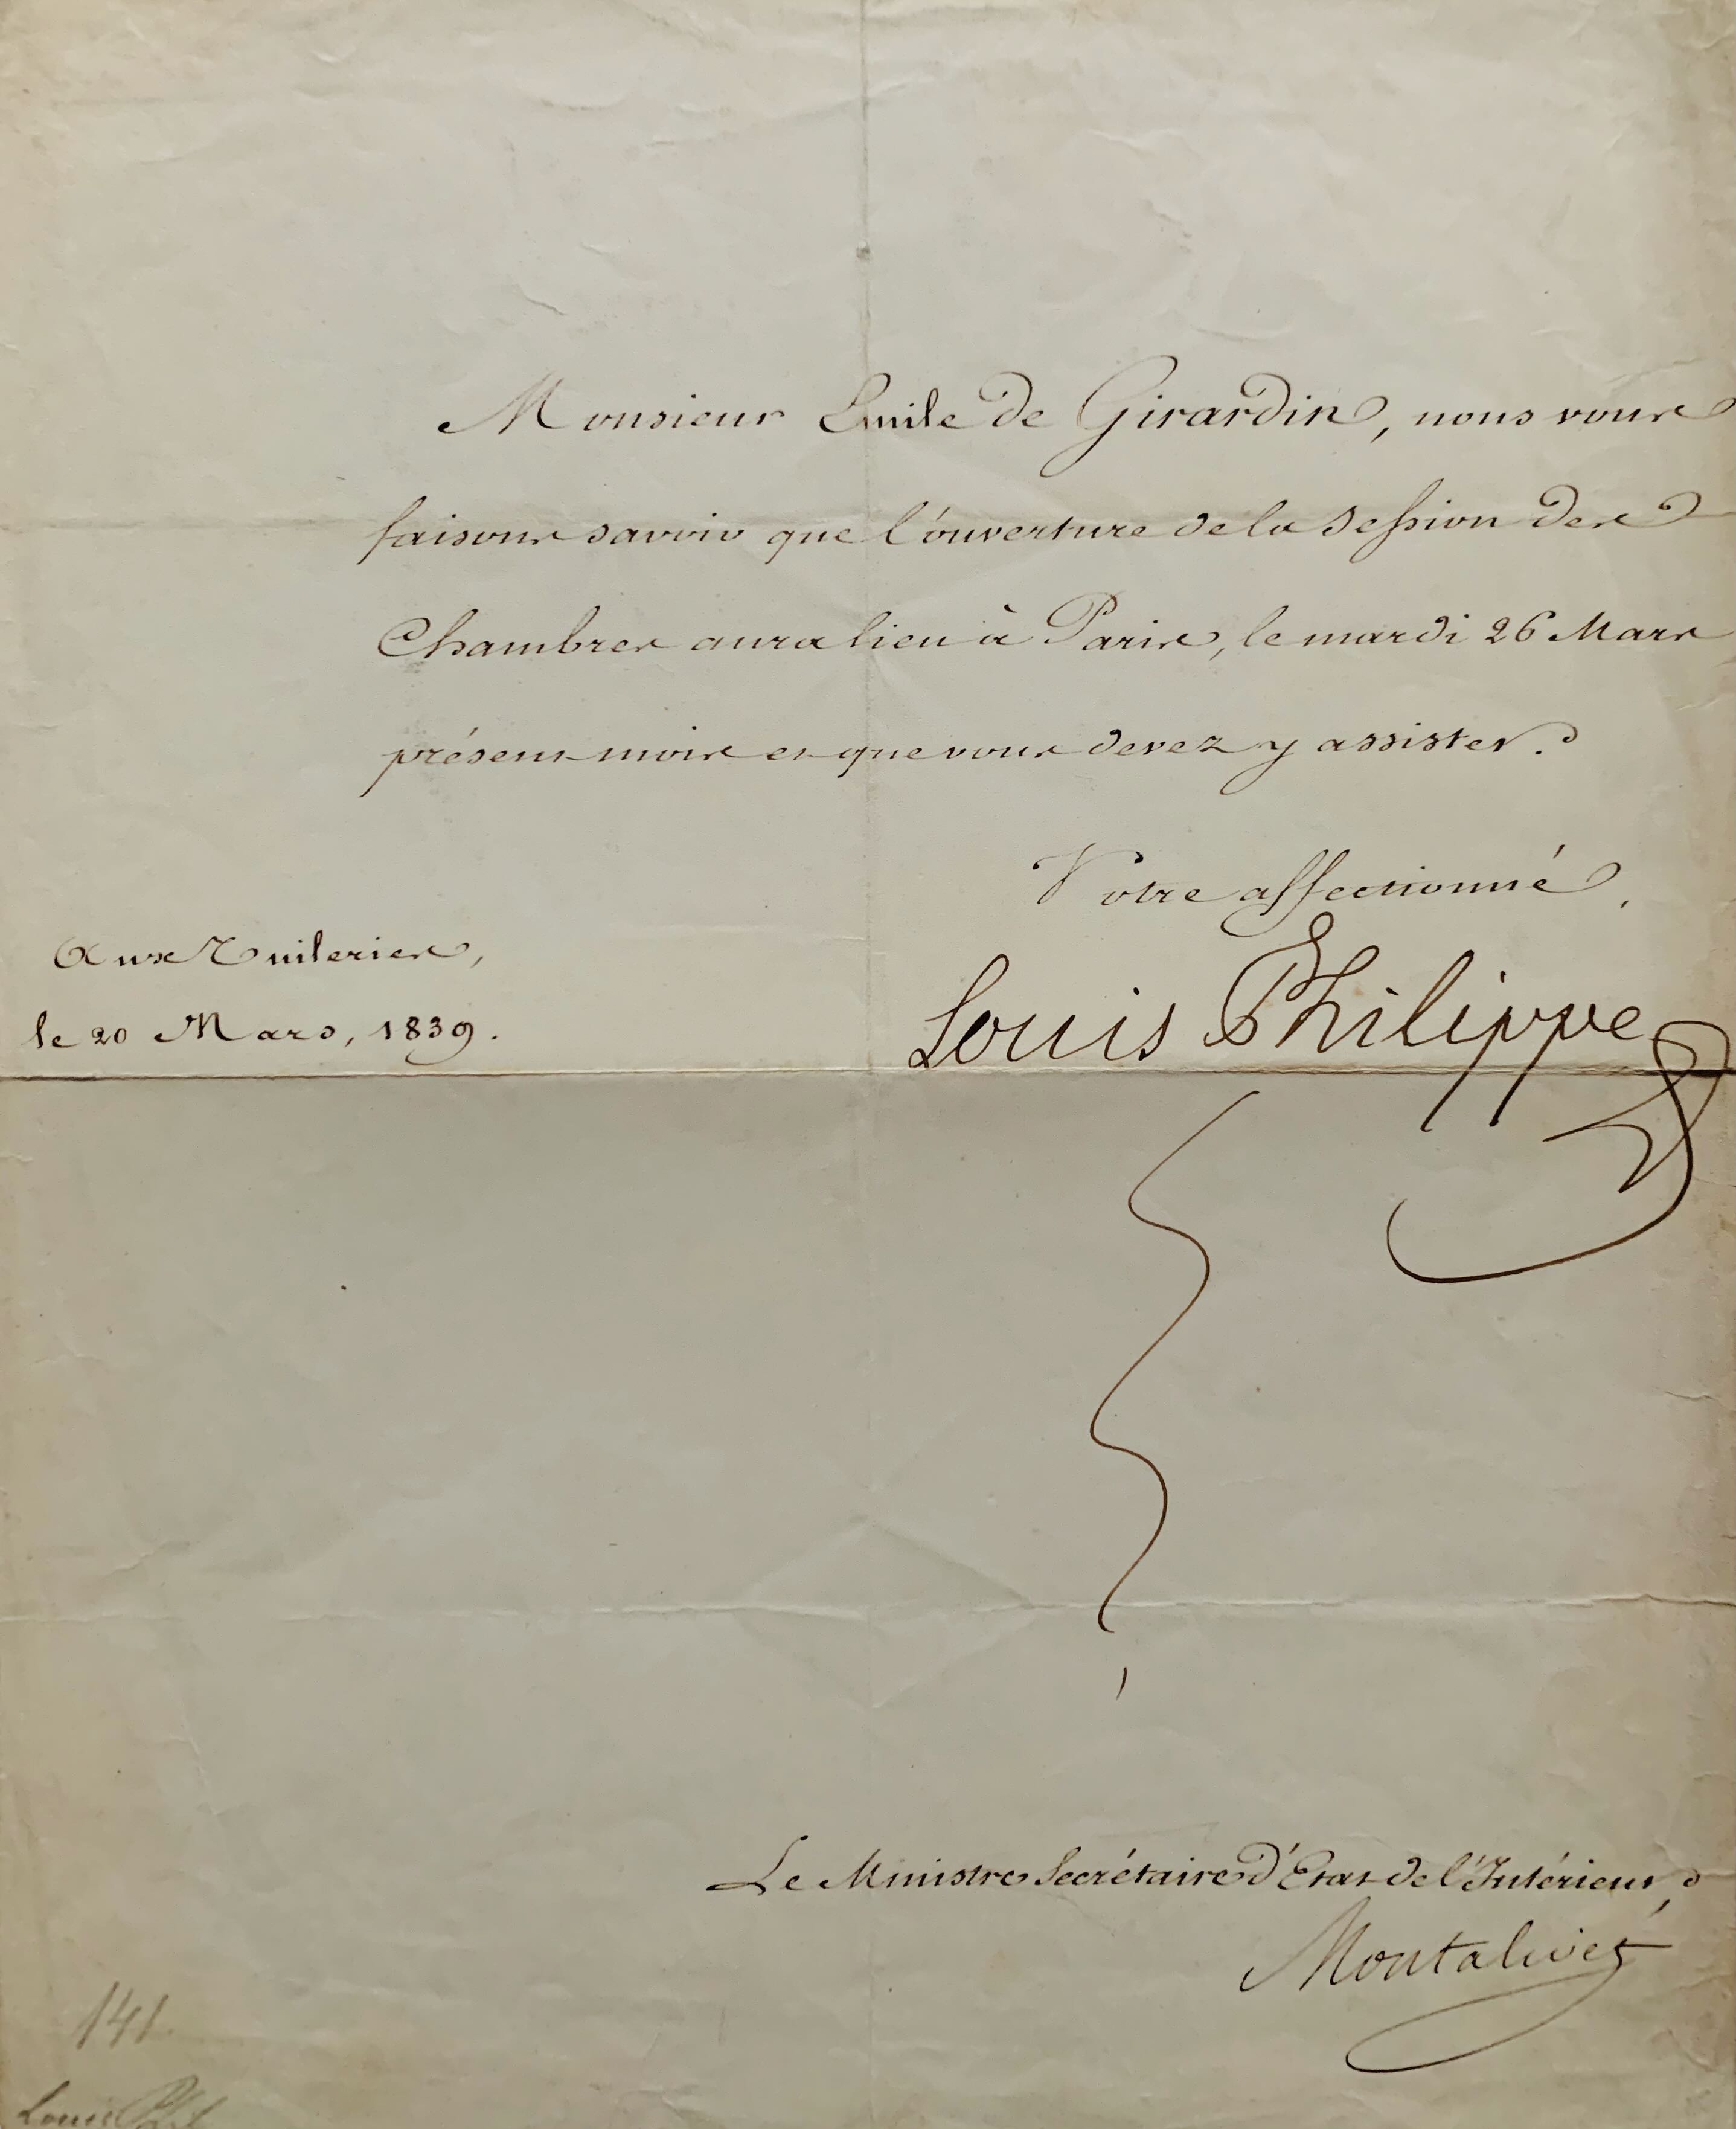 Monsieur Emile de Girardin, nous vous
faisons savoir que l'ouverture de la Session des
Chambres aura lieu à Paris, le mardi 26 Mars
présent mois et que vous devez y assister.
Votre affectionné,
Aux Tuileries,
le 20 Mars, 1839.
Louis Philippe
Le Ministre Secrétaire d'Etat de l'Intérieur,
Montalivet
141
Louis Phil